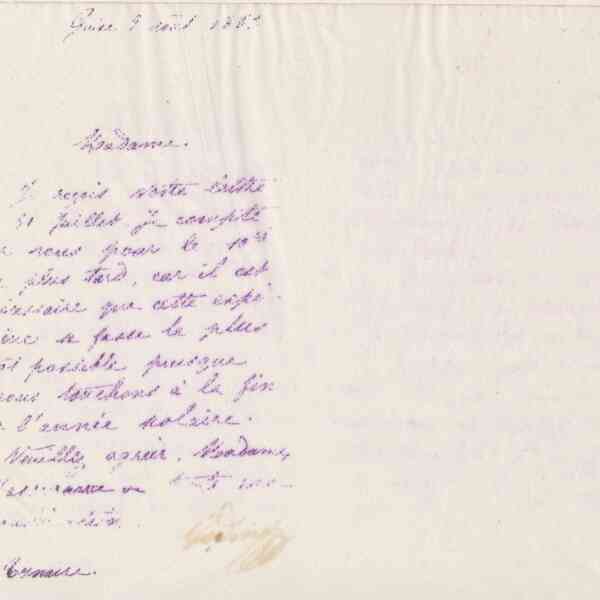 Guise 5 août 186
Madame.
Je reçois votre lettre
31 juillet. Je compte
vous pour le 10
plus tard, car il est
cessaire que cette expé-
ience se fasse le plus
tôt possible puisque
nous touchons à la fin
l'année scolaire.
Veuillez agréer, Madame,
Godin